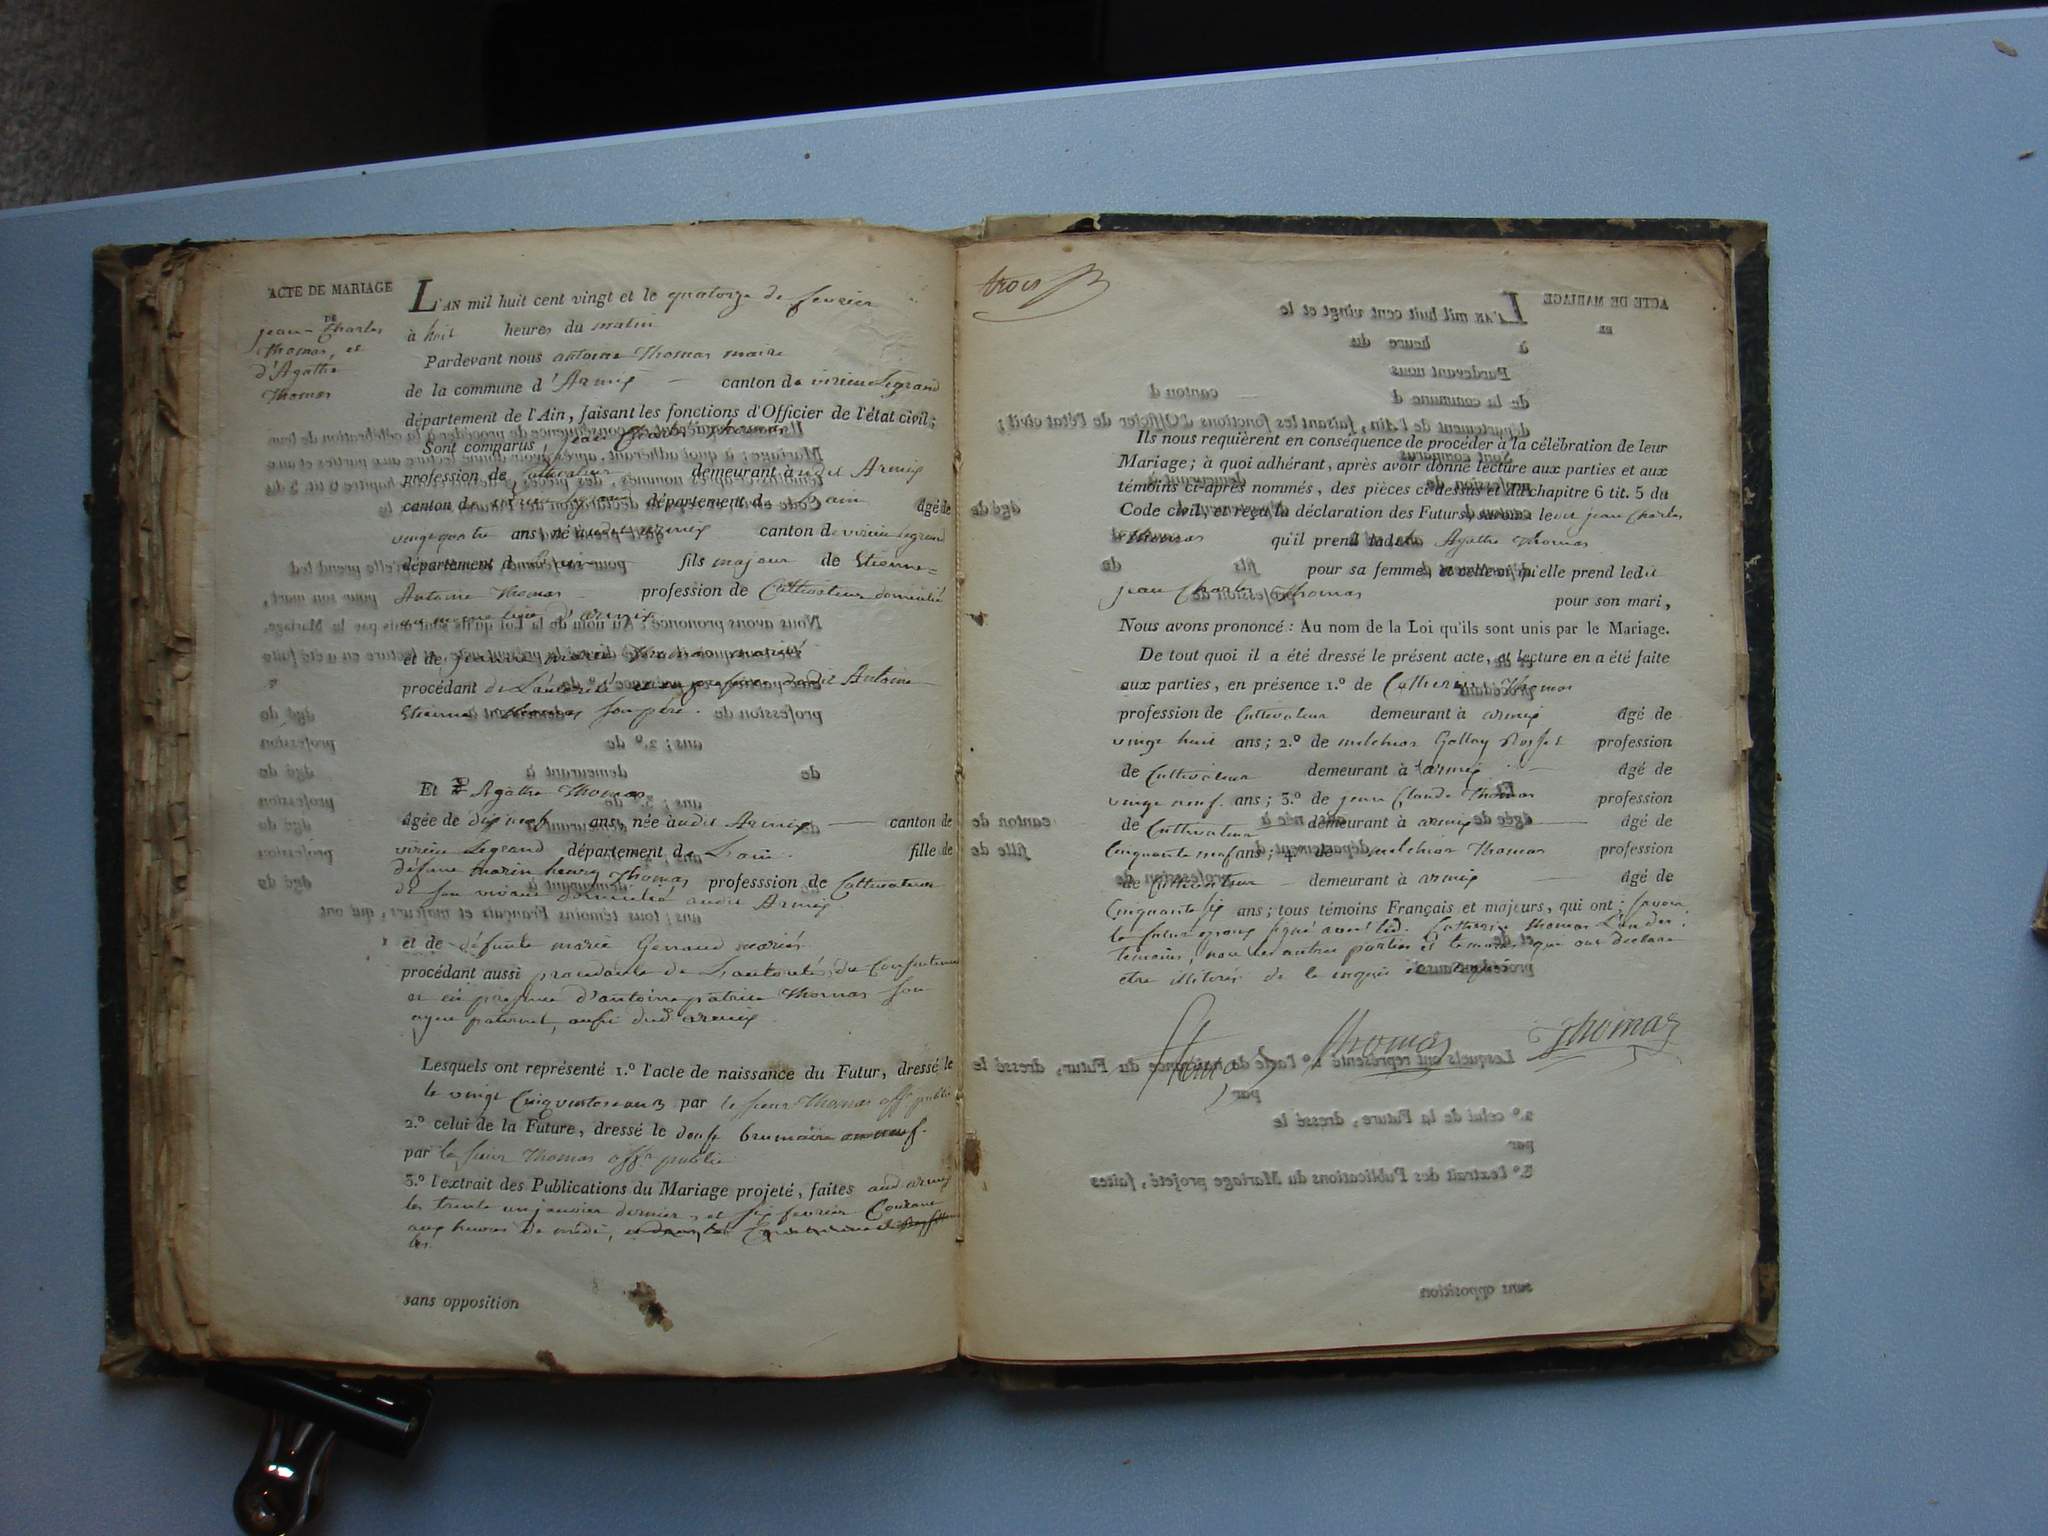 ACTE DE MARIAGE
DE
jean-Charles
Thomas, et
d'Agathe
Thomas
L'AN mil huit cent vingt et le quatorze de fevrier
à huit heures du matin
Pardevant nous antoine Thomas maire
de la commune d'Armix canton de virieu Legrand
département de l'Ain, faisant les fonctions d'Officier de l'état civil;
Sont comparus jean Charles Thomas
profession de Cultivateur demeurant à audit Armix
canton de virieu Legrand département de L'ain âgé de
vingt quatre ans né audit armix canton de virieu Legrand
département de L'ain fils majeur de Etienne=
Antoine Thomas profession de Cultivateur domicilié
au meme lieu d'armix
et de jeanne marie Thomas mariés
procédant de L'autorité et en présence dudit Antoine
Etienne Thomas son père.
Et Agathe Thomas
âgée de dix neuf ans, née audit Armix canton de
virieu Legrand département de L'ain fille de
défunt marin henry Thomas professsion de Cultivateur
de son vivant domicilié audit Armix
et de défunte marie Gerraud mariés
procédant aussi procedante de L'autorité, du Consentement
et en presence d'antoine patrice Thomas son
ayeul paternel, aussi dud. armix
Lesquels ont représenté 1.º l'acte de naissance du Futur, dressé le
le vingt cinq par le sieur Thomas off. public
2.º celui de la Future, dressé le douze brumaire an neuf.
par le sieur Thomas off. public
3.º l'extrait des Publications du Mariage projeté, faites aud armix
les trente un janvier dernier, et six fevrier Courant
aux heures de midi,
sans opposition
trois
Ils nous requièrent en conséquence de procéder à la célébration de leur
Mariage; à quoi adhérant, après avoir donné lecture aux parties et aux
témoins ci-après nommés, des pièces ci-dessus et du chapitre 6 tit. 5 du
Code civil, et reçu la déclaration des Futurs, savoir: ledit jean Charles
Thomas qu'il prend ladite Agathe Thomas
pour sa femme, et celle-ci qu'elle prend ledit
jean Charles Thomas pour son mari,
Nous avons prononcé: Au nom de la Loi qu'ils sont unis par le Mariage.
De tout quoi il a été dressé le présent acte, et lecture en a été faite
aux parties, en présence 1.º de Cathérin Thomas
profession de Cultivateur demeurant à armix âgé de
vingt huit ans; 2.º de melchior Gallay profession
de Cultivateur demeurant à armix âgé de
vingt neuf. ans; 3.º de jean Claude Thomas profession
de Cultivateur demeurant à armix âgé de
Cinquante neuf ans; 4.º de melchior Thomas profession
de Cultivateur demeurant à armix âgé de
Cinquante six ans; tous témoins Français et majeurs, qui ont: savoir
le futur epoux signé avec led. Catherin Thomas L'un des
témoins, non les autres parties et temoins que ont déclaré
etre illitérés de ce enquis
Thomas Thomas